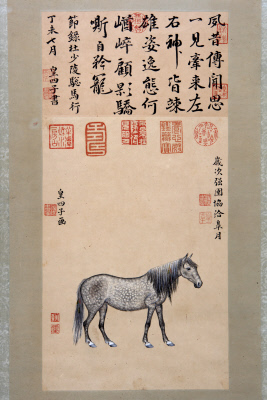 夙昔傳聞思
一見牽來左
右神皆竦
雄姿逸態何
崷崒顧影驕
嘶自矜寵
節錄杜少陵驄馬行
丁未七月 皇四子書
歲次强圉協洽皋月
皇四子画